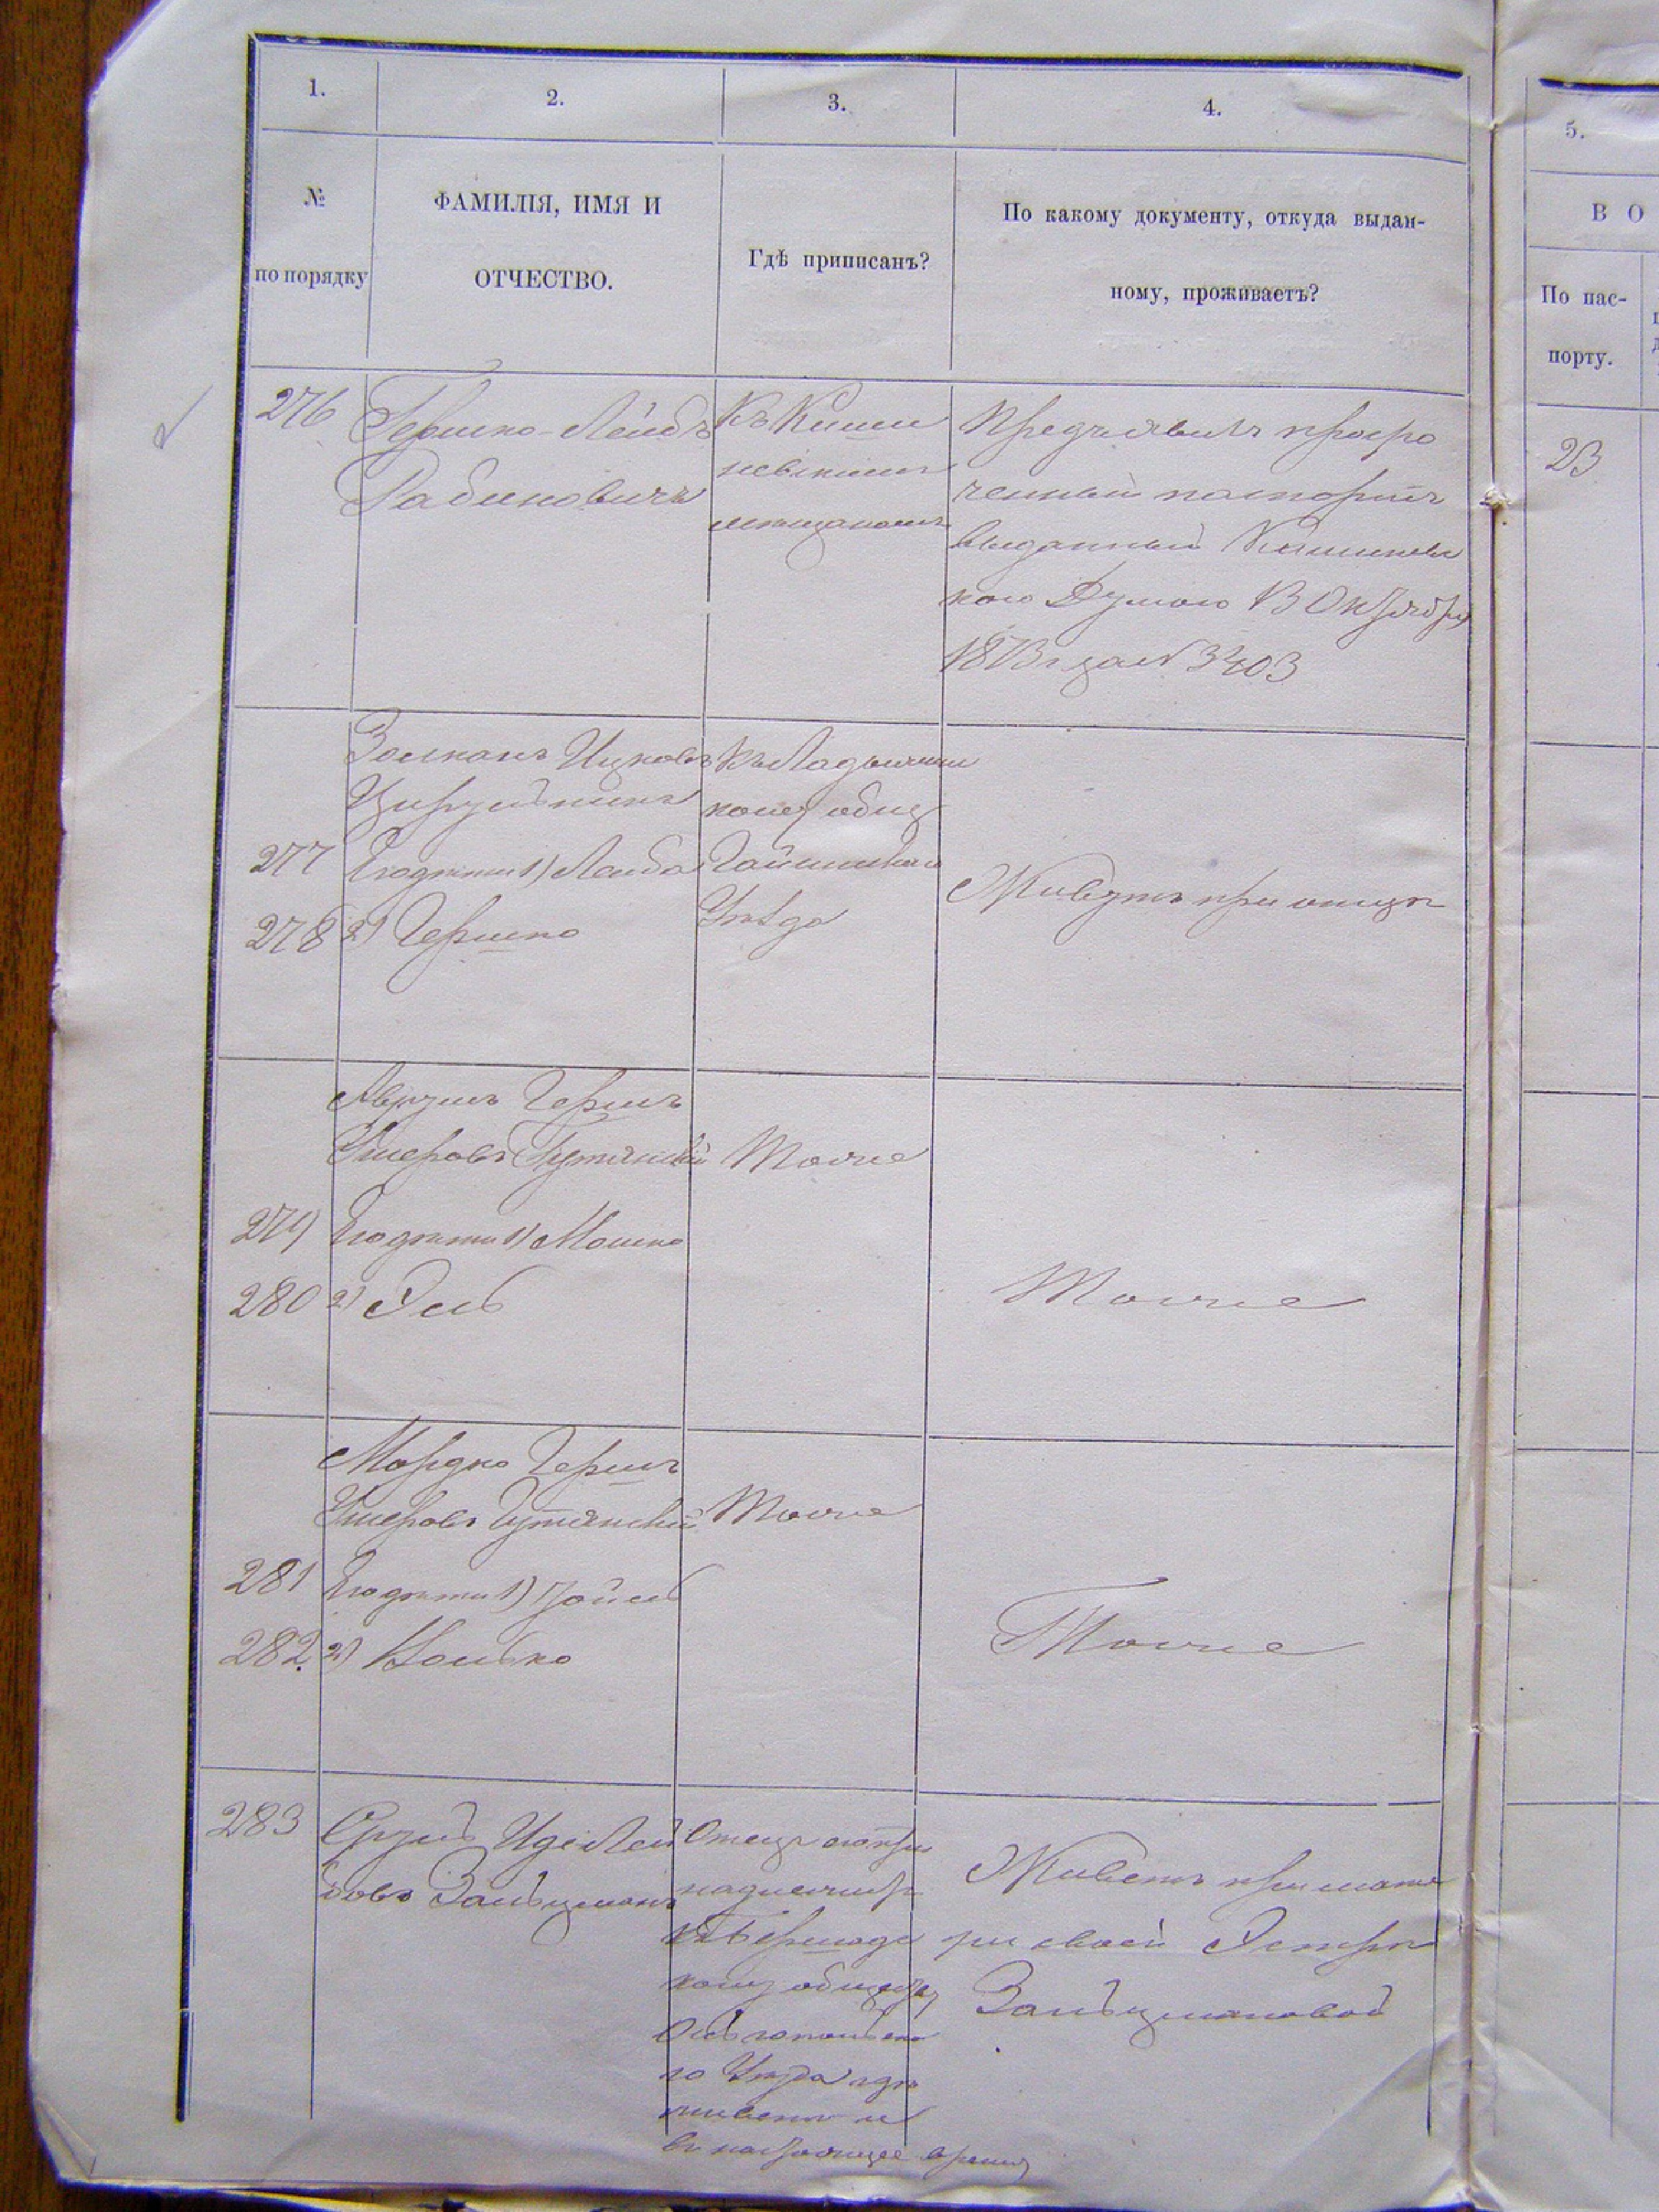 1. 2. 3. 4. 5.
№ по порядку
ФАМИЛІЯ, ИМЯ И
ОТЧЕСТВО.
Гдѣ приписанъ?
По какому документу, откуда выдан-
ному, проживаетъ?
В О
По пас-
порту.
276 Гершко-Лейбъ
Рабиновичъ
Къ Киши
невскимъ
мѣщанамъ
Предъявилъ просро
ченный паспортъ
выданный Кишиневс
кою Думою 13 Октября
1873 г за № 3403
23
Зелманъ Ицковъ
Цирульникъ
277 Его дѣти 1) Лейба
278 2) Гершко
Къ Ладыжинс
кому общ
Гайсинскаго
Уѣзда
Живутъ при отцѣ
Аврумъ Гершъ
Ушеровъ Гутянскій
279 Его дѣти 1) Мошко
280 2) Эль
Тоже
Тоже
Мордко Гершъ
Ушеровъ Гутянскій
281 Его дѣти 1)
282. 2)
Тоже
Тоже
283 Сруль Идъ Лей
бовъ Зальцманъ
Отецъ его при
надлежитъ
къ Бершадс
кому общест
Ольгопольска
го Уѣзда гдѣ
живетъ и
въ настоящее время
Живетъ при мате
ри своей Эстрѣ
Зальцмановой